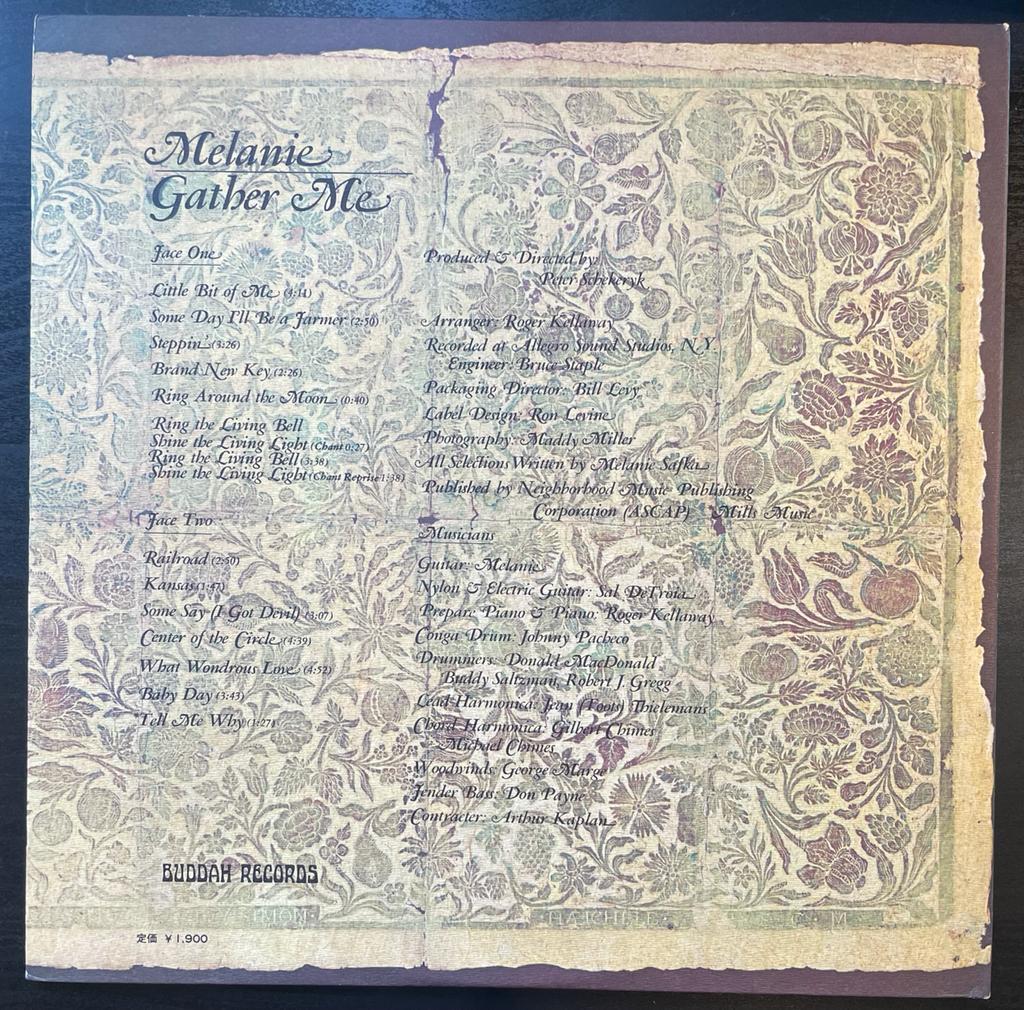 Melanie
Gather Me
Face One
Little Bit of Me (3:11)
Some Day I'll Be a Farmer (2:50)
Steppin (3:26)
Brand New Key (2:26)
Ring Around the Moon (0:40)
Ring the Living Bell
Shine the Living Light (Chant 0:27)
Ring the Living Bell (3:38)
Shine the Living Light (Chant Reprise 1:38)
Face Two
Railroad (2:50)
Kansas (1:47)
Some Say (I Got Devil) (3:07)
Center of the Circle (4:39)
What Wondrous Love (4:52)
Baby Day (3:43)
Tell Me Why (3:27)
Produced & Directed by:
Peter Schekeryk
Arranger: Roger Kellaway
Recorded at Allegro Sound Studios, N.Y.
Engineer: Bruce Staple
Packaging Director: Bill Levy
Label Design: Ron Levine
Photography: Maddy Miller
All Selections Written by Melanie Safka
Published by Neighborhood Music Publishing
Corporation (ASCAP) Mills Music
Musicians
Guitar: Melanie
Nylon & Electric Guitar: Sal DeTroia
Prepare Piano & Piano: Roger Kellaway
Conga Drum: Johnny Pacheco
Drummers: Donald MacDonald
Buddy Saltzman, Robert J. Gregg
Lead Harmonica: Jean (Toots) Thielemans
Chord Harmonica: Gilbert Chimes
Michael Chimes
Woodwinds: George Marge
Fender Bass: Don Payne
Contracter: Arthur Kaplan
BUDDAH RECORDS
定価 ¥1,900